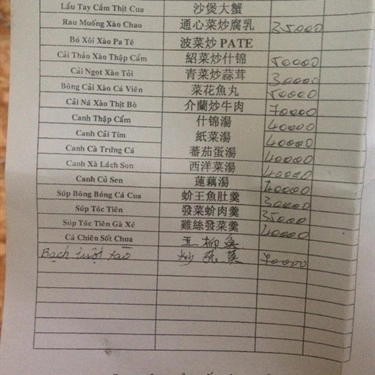 Lẩu Tay Cầm Thịt Cua 沙煲大蟹
Rau Muống Xào Chao 通心菜炒腐乳 35000
Bó Xôi Xào Pa Tê 波菜炒 PATE
Cải Thảo Xào Thập Cẩm 紹菜炒什錦 50000
Cải Ngọt Xào Tỏi 青菜炒蒜茸 30000
Bông Cải Xào Cá Viên 菜花魚丸 50000
Cải Ná Xào Thịt Bò 介蘭炒牛肉 70000
Canh Thập Cẩm 什錦湯 40000
Canh Cải Tím 紙菜湯 40000
Canh Cà Trứng Cá 蕃茄蛋湯 40000
Canh Xà Lách Son 西洋菜湯 40000
Canh Củ Sen 蓮藕湯 40000
Súp Bông Bóng Cá Cua 蚧王魚肚羹 30000
Súp Tóc Tiên 發菜蚧肉羹 35000
Súp Tóc Tiên Gà Xé 雞絲發菜羹 40000
Cá Chiên Sốt Chua 五柳魚
Bạch tuột xào 炒 70000